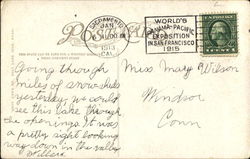 SACRAMENTO
JAN
1913
CAL.
WORLD'S
PANAMA-PACIFIC
EXPOSITION
IN SAN FRANCISCO
1915
Going through
miles of snow sheds
yesterday, we could
see this lake through
the openings. It was
a pretty sight looking
way down in the valley
Miss Mary Wilson
Windsor
Conn